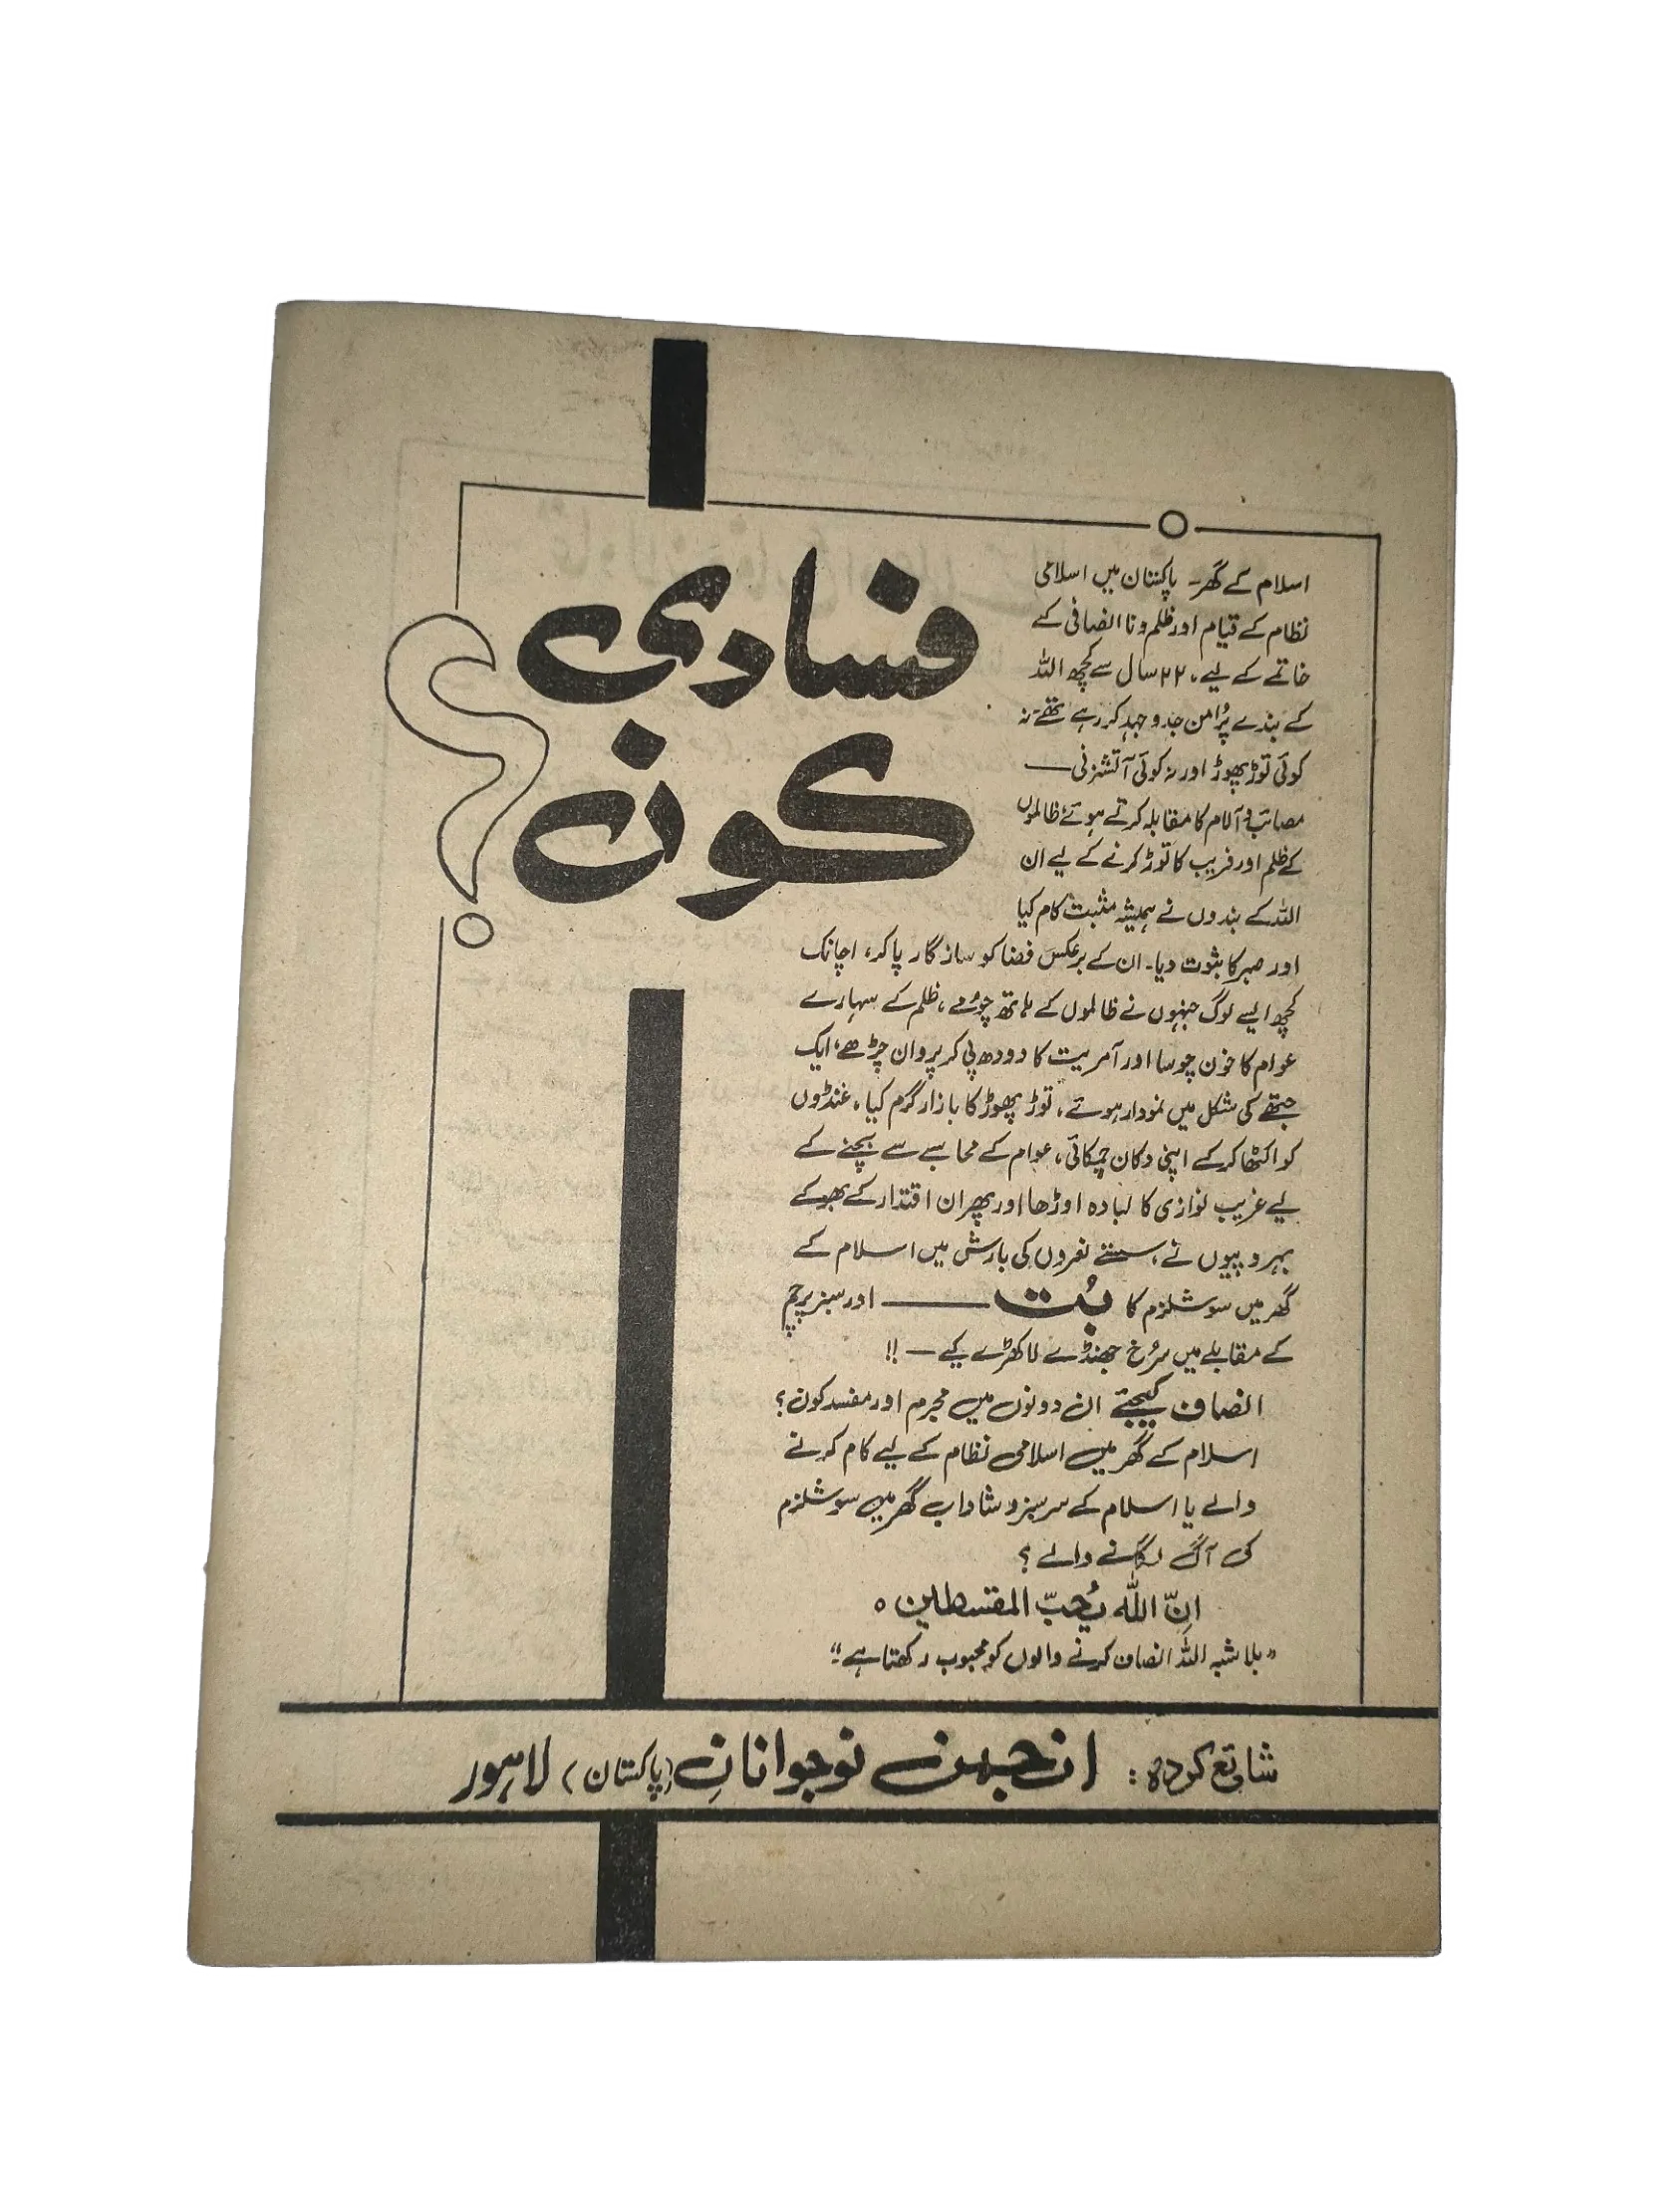 فسادی
کون ؟
اسلام کے گھر - پاکستان میں اسلامی
نظام کے قیام اور ظلم و نا انصافی کے
خاتمے کے لیے، ۲۲ سال سے کچھ اللہ
کے بندے پُرامن جدوجہد کر رہے تھے - نہ
کوئی توڑ پھوڑ اور نہ کوئی آتشزنی —
مصائب و آلام کا مقابلہ کرتے ہوئے ظالموں
کے ظلم اور فریب کا توڑ کرنے کے لیے ان
اللہ کے بندوں نے ہمیشہ مثبت کام کیا
اور صبر کا ثبوت دیا۔ ان کے برعکس فضا کو سازگار پا کر، اچانک
کچھ ایسے لوگ جنہوں نے ظالموں کے ہاتھ چومے، ظلم کے سہارے
عوام کا خون چوسا اور آمریت کا دودھ پی کر پروان چڑھے، ایک
جتھے کی شکل میں نمودار ہوئے، توڑ پھوڑ کا بازار گرم کیا، غنڈوں
کو اکٹھا کر کے اپنی دکان چمکائی، عوام کے محاسبے سے بچنے کے
لیے غریب نوازی کا لبادہ اوڑھا اور پھر ان اقتدار کے بھوکے
بہروپیوں نے، سستے نعروں کی بارش میں اسلام کے
گھر میں سوشلزم کا بُت ——— اور سبز پرچم
کے مقابلے میں سُرخ جھنڈے لا کھڑے کیے — !!
انصاف کیجئے ان دونوں میں مجرم اور مفسد کون؟
اسلام کے گھر میں اسلامی نظام کے لیے کام کرنے
والے یا اسلام کے سرسبز و شاداب گھر میں سوشلزم
کی آگ لگانے والے ؟
اِنّ اللّٰہ یُحبّ المقسطین ہ
"بلا شبہ اللہ انصاف کرنے والوں کو محبوب رکھتا ہے"
شائع کردہ : انجمن نوجوانانِ (پاکستان) لاہور